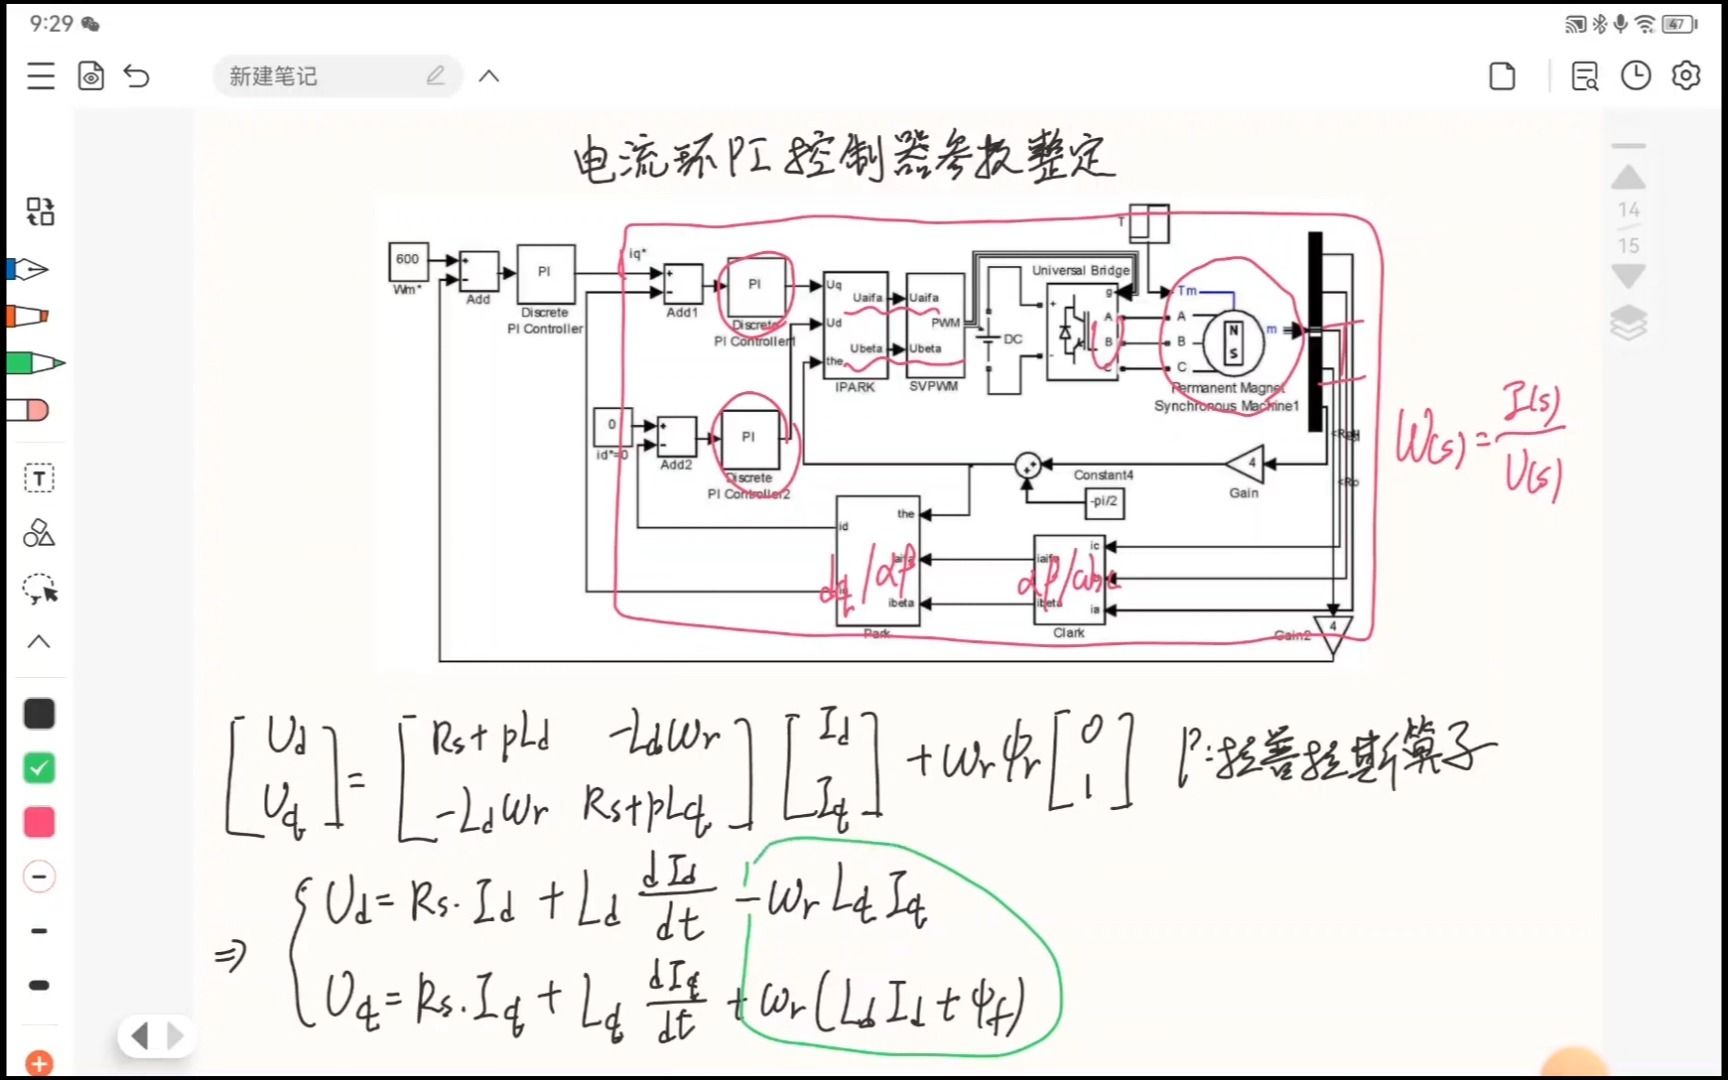 9:29
47
新建笔记
14
15
电流环PI控制器参数整定
600
Wm*
Add
PI
Discrete
PI Controller
iq*
Add1
PI
Discrete
PI Controller1
Uq
Ud
the
Uaifa
Ubeta
IPARK
Uaifa
Ubeta
PWM
SVPWM
DC
Universal Bridge
g
A
B
C
+
-
T
Tm
A
B
C
N
S
m
Permanent Magnet
Synchronous Machine1
0
id*=0
Add2
PI
Discrete
PI Controller2
Constant4
-pi/2
4
Gain
id
the
ibeta
Park
dq/αβ
ic
ia
ibeta
Clark
αβ/abc
4
Gain2
W(s)=I(s)/U(s)
[Ud Uq]=[Rs+pLd -LdWr -LdWr Rs+pLq][Id Iq]+Wrψr[0 1] P:拉普拉斯算子
⇒{Ud=Rs·Id+Ld dId/dt -WrLqIq
Uq=Rs·Iq+Lq dIq/dt +Wr(LdId+ψf)